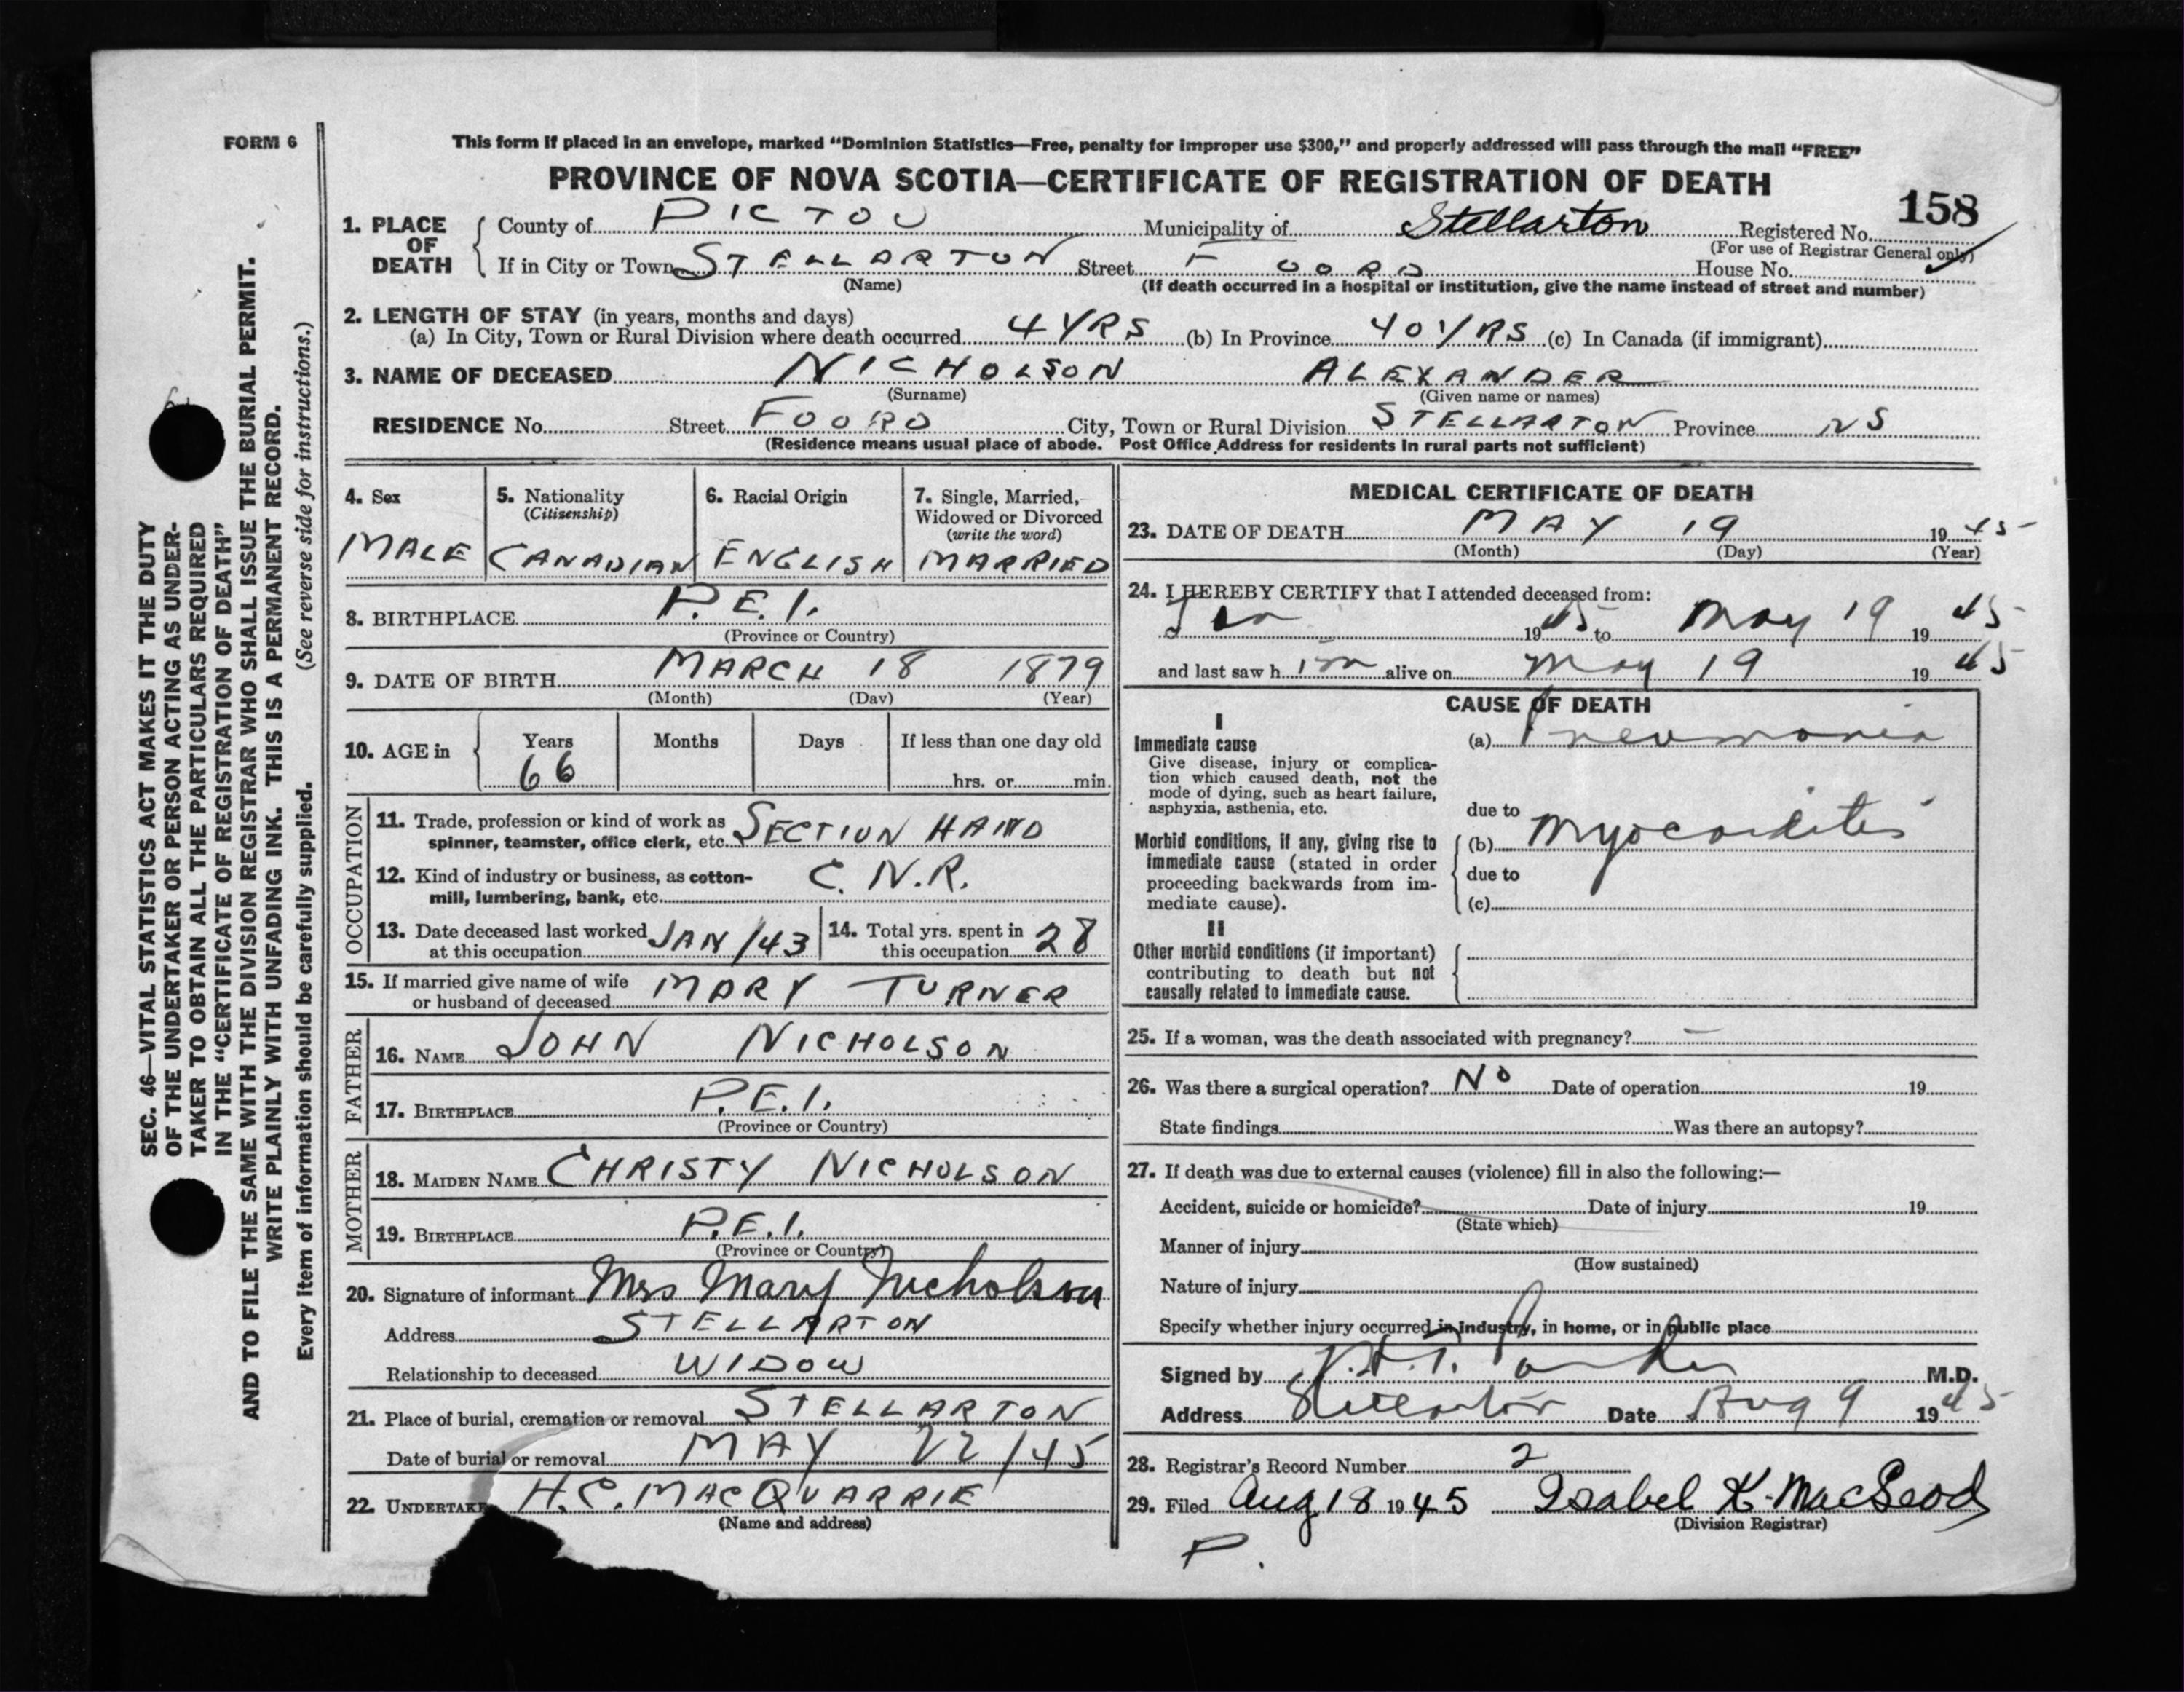 FORM 6
This form if placed in an envelope, marked “Dominion Statistics—Free, penalty for improper use $300,” and properly addressed will pass through the mail “FREE”
PROVINCE OF NOVA SCOTIA—CERTIFICATE OF REGISTRATION OF DEATH
158
1. PLACE OF DEATH { County of PICTOU Municipality of Stellarton Registered No.
(For use of Registrar General only)
If in City or Town STELLARTON Street FOORD House No.
(Name) (If death occurred in a hospital or institution, give the name instead of street and number)
2. LENGTH OF STAY (in years, months and days)
(a) In City, Town or Rural Division where death occurred 4 YRS (b) In Province 40 YRS (c) In Canada (if immigrant)
3. NAME OF DECEASED NICHOLSON ALEXANDER
(Surname) (Given name or names)
RESIDENCE No. Street FOORD City, Town or Rural Division STELLARTON Province NS
(Residence means usual place of abode. Post Office Address for residents in rural parts not sufficient)
4. Sex
MALE
5. Nationality
(Citizenship)
CANADIAN
6. Racial Origin
ENGLISH
7. Single, Married,
Widowed or Divorced
(write the word)
MARRIED
8. BIRTHPLACE P.E.I.
(Province or Country)
9. DATE OF BIRTH MARCH 18 1879
(Month) (Day) (Year)
10. AGE in { Years Months Days If less than one day old
66 hrs. or min.
OCCUPATION
11. Trade, profession or kind of work as
spinner, teamster, office clerk, etc. SECTION HAND
12. Kind of industry or business, as cotton-
mill, lumbering, bank, etc. C.N.R.
13. Date deceased last worked
at this occupation JAN/43
14. Total yrs. spent in
this occupation 28
15. If married give name of wife
or husband of deceased MARY TURNER
FATHER
16. NAME JOHN NICHOLSON
17. BIRTHPLACE P.E.I.
(Province or Country)
MOTHER
18. MAIDEN NAME CHRISTY NICHOLSON
19. BIRTHPLACE P.E.I.
(Province or Country)
20. Signature of informant Mrs Mary Nicholson
Address STELLARTON
Relationship to deceased WIDOW
21. Place of burial, cremation or removal STELLARTON
Date of burial or removal MAY 22/45
22. UNDERTAKE H.C. MACQUARRIE
(Name and address)
MEDICAL CERTIFICATE OF DEATH
23. DATE OF DEATH MAY 19 1945
(Month) (Day) (Year)
24. I HEREBY CERTIFY that I attended deceased from:
1945 to May 19 1945
and last saw him alive on May 19 1945
CAUSE OF DEATH
I
Immediate cause
Give disease, injury or complica-
tion which caused death, not the
mode of dying, such as heart failure,
asphyxia, asthenia, etc.
(a) Pneumonia
due to
Morbid conditions, if any, giving rise to
immediate cause (stated in order
proceeding backwards from im-
mediate cause).
(b) Myocarditis
due to
(c)
II
Other morbid conditions (if important)
contributing to death but not
causally related to immediate cause.
25. If a woman, was the death associated with pregnancy? —
26. Was there a surgical operation? No Date of operation 19
State findings Was there an autopsy?
27. If death was due to external causes (violence) fill in also the following:—
Accident, suicide or homicide? Date of injury 19
(State which)
Manner of injury
(How sustained)
Nature of injury
Specify whether injury occurred in industry, in home, or in public place
Signed by M.D.
Address Stellarton Date Aug 9 1945
28. Registrar's Record Number 2
29. Filed Aug 18 1945 Isabel K. MacLeod
(Division Registrar)
P.
SEC. 46—VITAL STATISTICS ACT MAKES IT THE DUTY
OF THE UNDERTAKER OR PERSON ACTING AS UNDER-
TAKER TO OBTAIN ALL THE PARTICULARS REQUIRED
IN THE “CERTIFICATE OF REGISTRATION OF DEATH”
AND TO FILE THE SAME WITH THE DIVISION REGISTRAR WHO SHALL ISSUE THE BURIAL PERMIT.
WRITE PLAINLY WITH UNFADING INK. THIS IS A PERMANENT RECORD.
Every item of information should be carefully supplied. (See reverse side for instructions.)